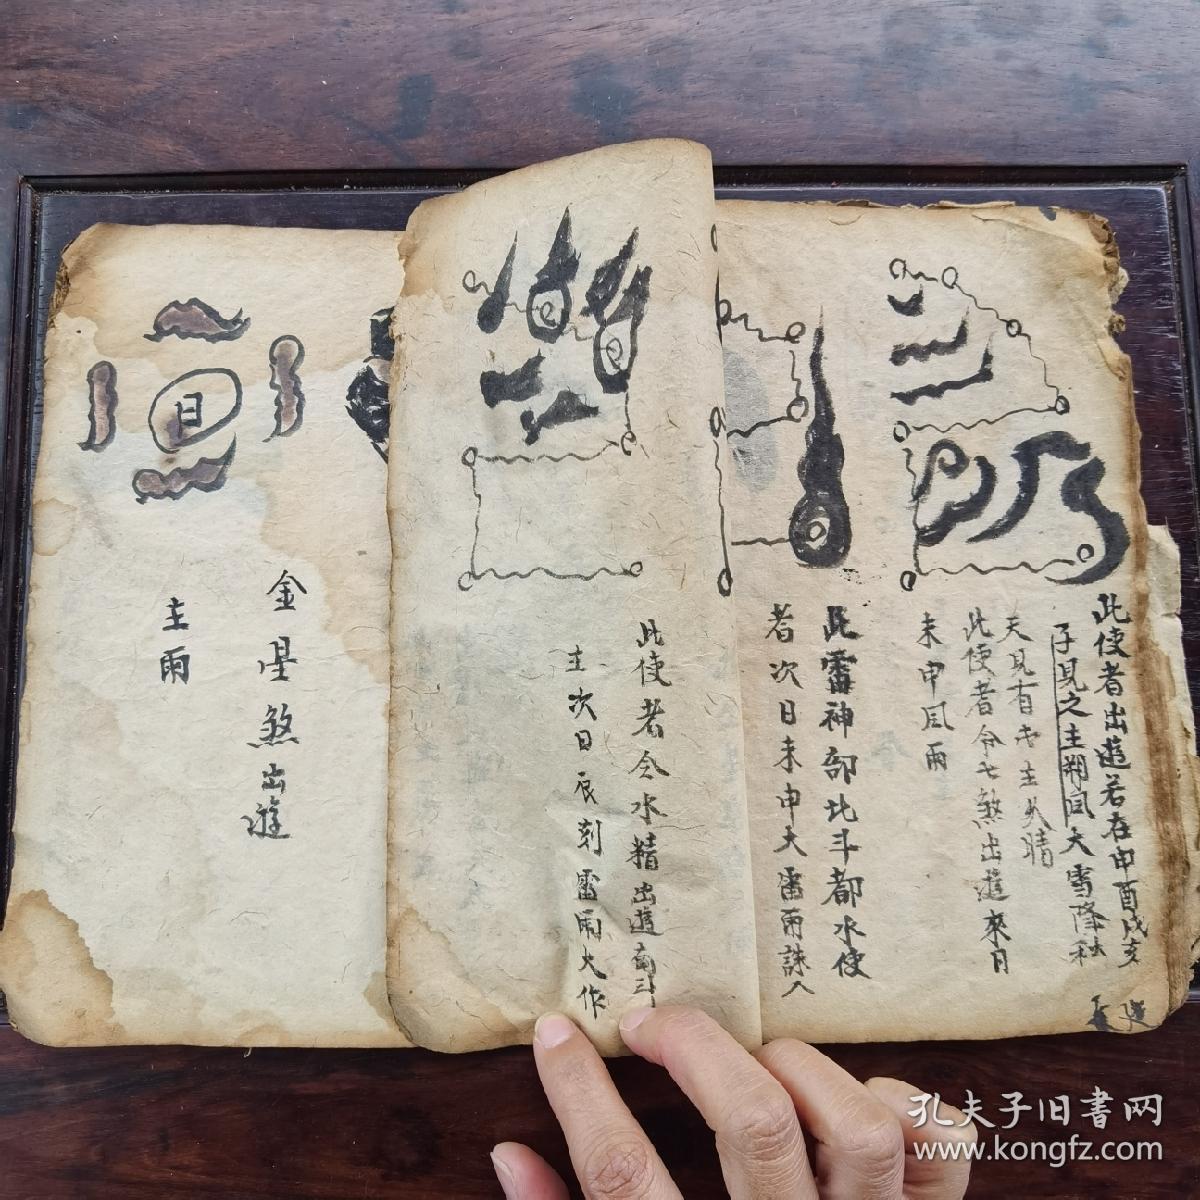 此使者出遊若在申酉戌亥
子見之主朔風大雪降
天見有
此使者令七煞出遊來日
未申風雨
此雷神部北斗都水使
者次日未申大雷雨誅人
此使者令水精出遊南斗
主次日辰刻雷雨大作
金星煞出遊
主雨
日
孔夫子旧書网
www.kongfz.com